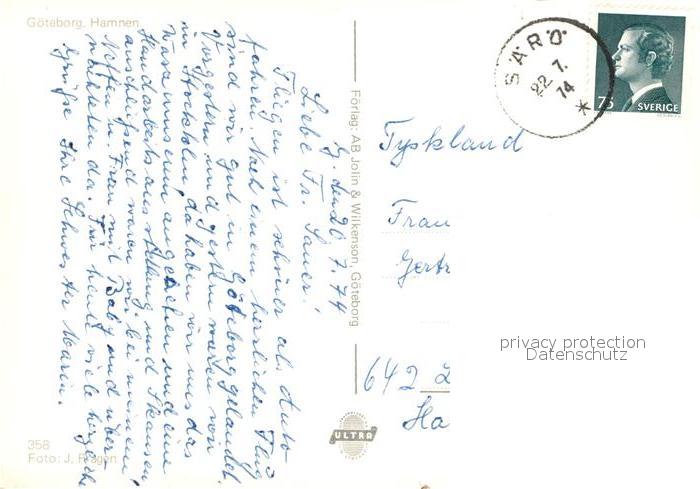 Göteborg, Hamnen
G. den 20.7.74
Liebe Fr. Sauer!
Fliegen ist schöner als Auto-
fahren. Nach einem herrlichen Flug
sind wir gut in Göteborg gelandet.
Vorgestern und gestern waren wir
in Stockholm, da haben wir uns das
Wasamuseum angesehen und eine
Handarbeitsausstellung und Skansen,
anschließend waren wir bei meinem
Neffen u. Frau mit Baby und über-
nachteten da. Für heute viele herzliche
Grüße Ihre Schwester Maria.
358
Foto: J. Fragen
Förlag: AB Jolin & Wilkenson, Göteborg
ULTRA
SÄRÖ
22.7.
74
75
SVERIGE
Tyskland
Frau
Gertr
642
Ha
privacy protection
Datenschutz